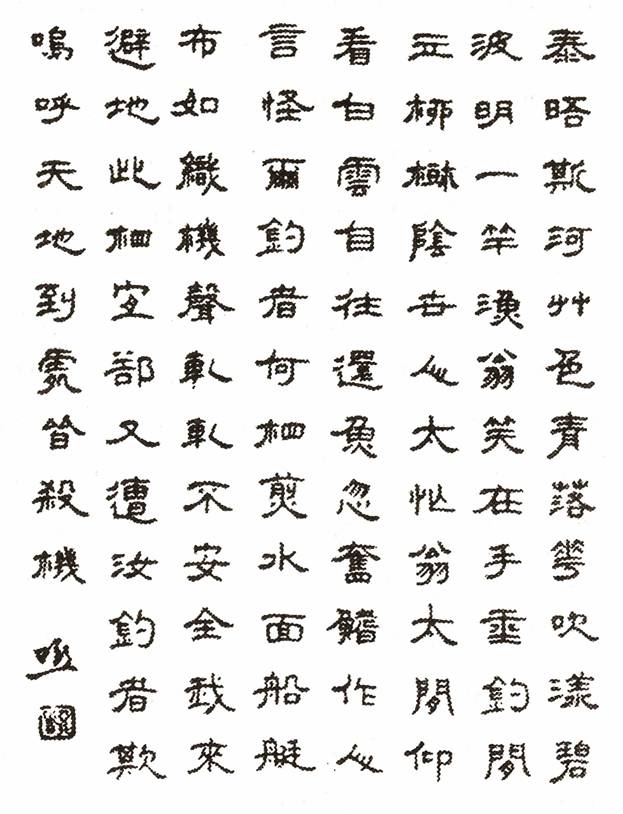 泰晤斯河艸色青落華吹漾碧
波明一竿漁翁笑在手垂釣閒
立柳陰世人太忙翁太閒仰
看白雲自往還魚忽奮鰭作人
言怪爾釣者何相煎水面船艇
布如織機聲軋軋不安全我來
避地此相宜卻又遭汝釣者欺
嗚呼天地到處皆殺機